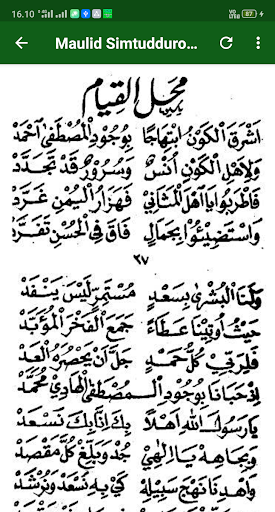 16.10
VoLTE 87
Maulid Simtudduro...
محل القيام
اشرق الكون ابتهاجا بوجود المصطفى احمد
ولاهل الكون انس وسرور قد تجدد
فاطربوا يا اهل المثاني فهزار اليمن غرد
واستضيئوا بجمال فاق في الحسن تفرد
٢٧
ولنا البشرى بسعد مستمر ليس ينفد
حيث اوتينا عطاء جمع الفخر المؤبد
فلربي كل حمد جل ان يحصره العد
اذ حبانا بوجود المصطفى الهادي محمد
يا رسول الله اهلا بك انا بك نسعد
وبجاهه يا الهي جد وبلغ كل مقصد
واهدنا نهج سبيله كي به نسعد ونرشد